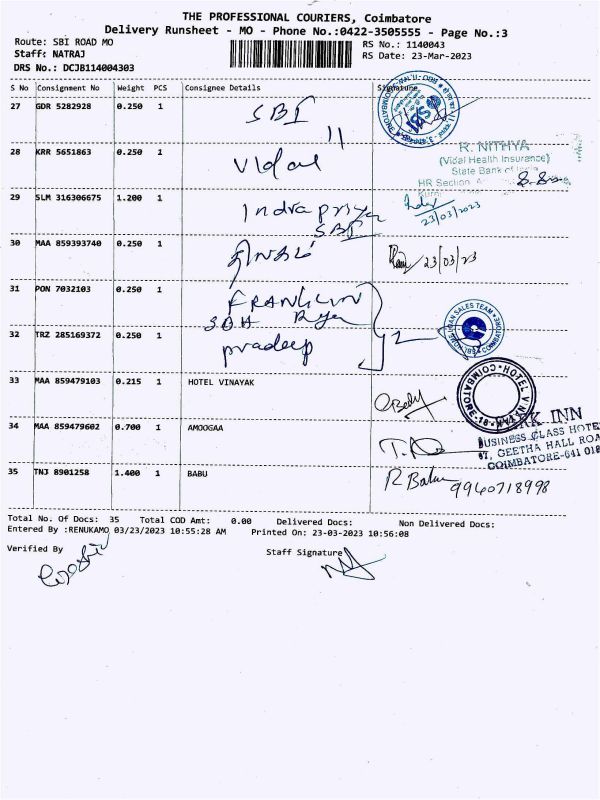 THE PROFESSIONAL COURIERS, Coimbatore
Delivery Runsheet - MO - Phone No.:0422-3505555 - Page No.:3
Route: SBI ROAD MO
RS No.: 1140043
Staff: NATRAJ
RS Date: 23-Mar-2023
DRS No.: DCJB114004303
S No Consignment No Weight PCS Consignee Details Signature
27 GDR 5282928 0.250 1 SBI
28 KRR 5651863 0.250 1 Vidal
R. NITHYA
(Vidal Health Insurance)
State Bank of
HR Section
29 SLM 316306675 1.200 1 Indrapriya
SBI
23/03/2023
30 MAA 859393740 0.250 1 தினகர் 23/03/23
31 PON 7032103 0.250 1 FRANKLIN
32 TRZ 285169372 0.250 1 pradeep
33 MAA 859479103 0.215 1 HOTEL VINAYAK
34 MAA 859479602 0.700 1 AMOOGAA
INN
BUSINESS CLASS HOTE
67, GEETHA HALL ROA
COIMBATORE-641 018
35 TNJ 8901258 1.400 1 BABU R Babu 9940718998
Total No. Of Docs: 35 Total COD Amt: 0.00 Delivered Docs: Non Delivered Docs:
Entered By :RENUKAMO 03/23/2023 10:55:28 AM Printed On: 23-03-2023 10:56:08
Verified By Staff Signature